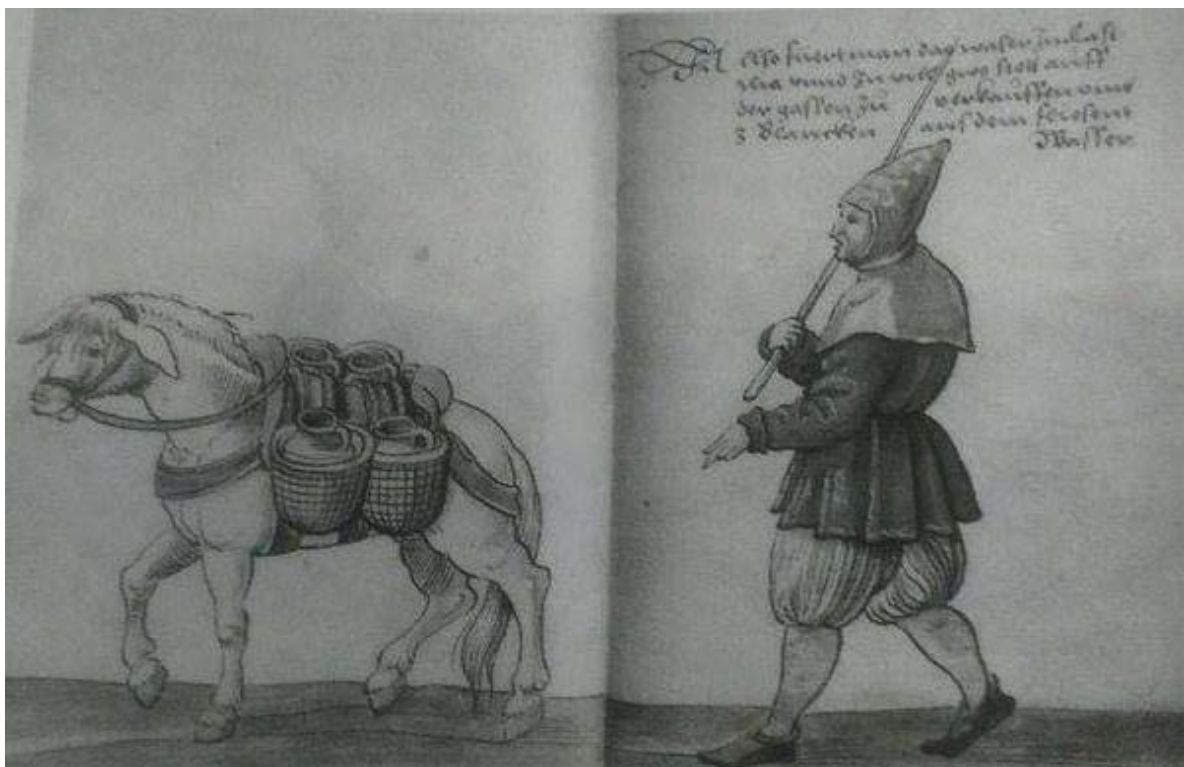 Also fuert man das waser Zu Casti
lia vnnd Zu vill gros stett auff
der gassen zu verkauffen vmb
3 Blancken aus dem
Wasser